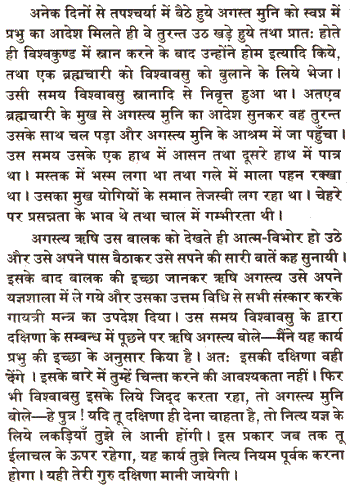 अनेक दिनों से तपश्चर्या में बैठे हुये अगस्त मुनि को स्वप्न में
प्रभु का आदेश मिलते ही वे तुरन्त उठ खड़े हुये तथा प्रातः होते
ही विश्वकुण्ड में स्नान करने के बाद उन्होंने होम इत्यादि किये,
तथा एक ब्रह्मचारी को विश्वावसु को बुलाने के लिये भेजा।
उसी समय विश्वावसु स्नानादि से निवृत्त हुआ था। अतएव
ब्रह्मचारी के मुख से अगस्त्य मुनि का आदेश सुनकर वह तुरन्त
उसके साथ चल पड़ा और अगस्त्य मुनि के आश्रम में जा पहुँचा।
उस समय उसके एक हाथ में आसन तथा दूसरे हाथ में पात्र
था। मस्तक में भस्म लगा था तथा गले में माला पहन रक्खा
था। उसका मुख योगियों के समान तेजस्वी लग रहा था। चेहरे
पर प्रसन्नता के भाव थे तथा चाल में गम्भीरता थी।
अगस्त्य ऋषि उस बालक को देखते ही आत्म-विभोर हो उठे
और उसे अपने पास बैठाकर उसे सपने की सारी बातें कह सुनायी।
इसके बाद बालक की इच्छा जानकर ऋषि अगस्त्य उसे अपने
यज्ञशाला में ले गये और उसका उत्तम विधि से सभी संस्कार करके
गायत्री मन्त्र का उपदेश दिया। उस समय विश्वावसु के द्वारा
दक्षिणा के सम्बन्ध में पूछने पर ऋषि अगस्त्य बोले—मैंने यह कार्य
प्रभु की इच्छा के अनुसार किया है। अतः इसकी दक्षिणा वही
देंगे। इसके बारे में तुम्हें चिन्ता करने की आवश्यकता नहीं। फिर
भी विश्वावसु इसके लिये जिद्द करता रहा, तो अगस्त्य मुनि
बोले—हे पुत्र! यदि तू दक्षिणा ही देना चाहता है, तो नित्य यज्ञ के
लिये लकड़ियाँ तुझे ले आनी होंगी। इस प्रकार जब तक तू
ईलाचल के ऊपर रहेगा, यह कार्य तुझे नित्य नियम पूर्वक करना
होगा। यही तेरी गुरु दक्षिणा मानी जायेगी।